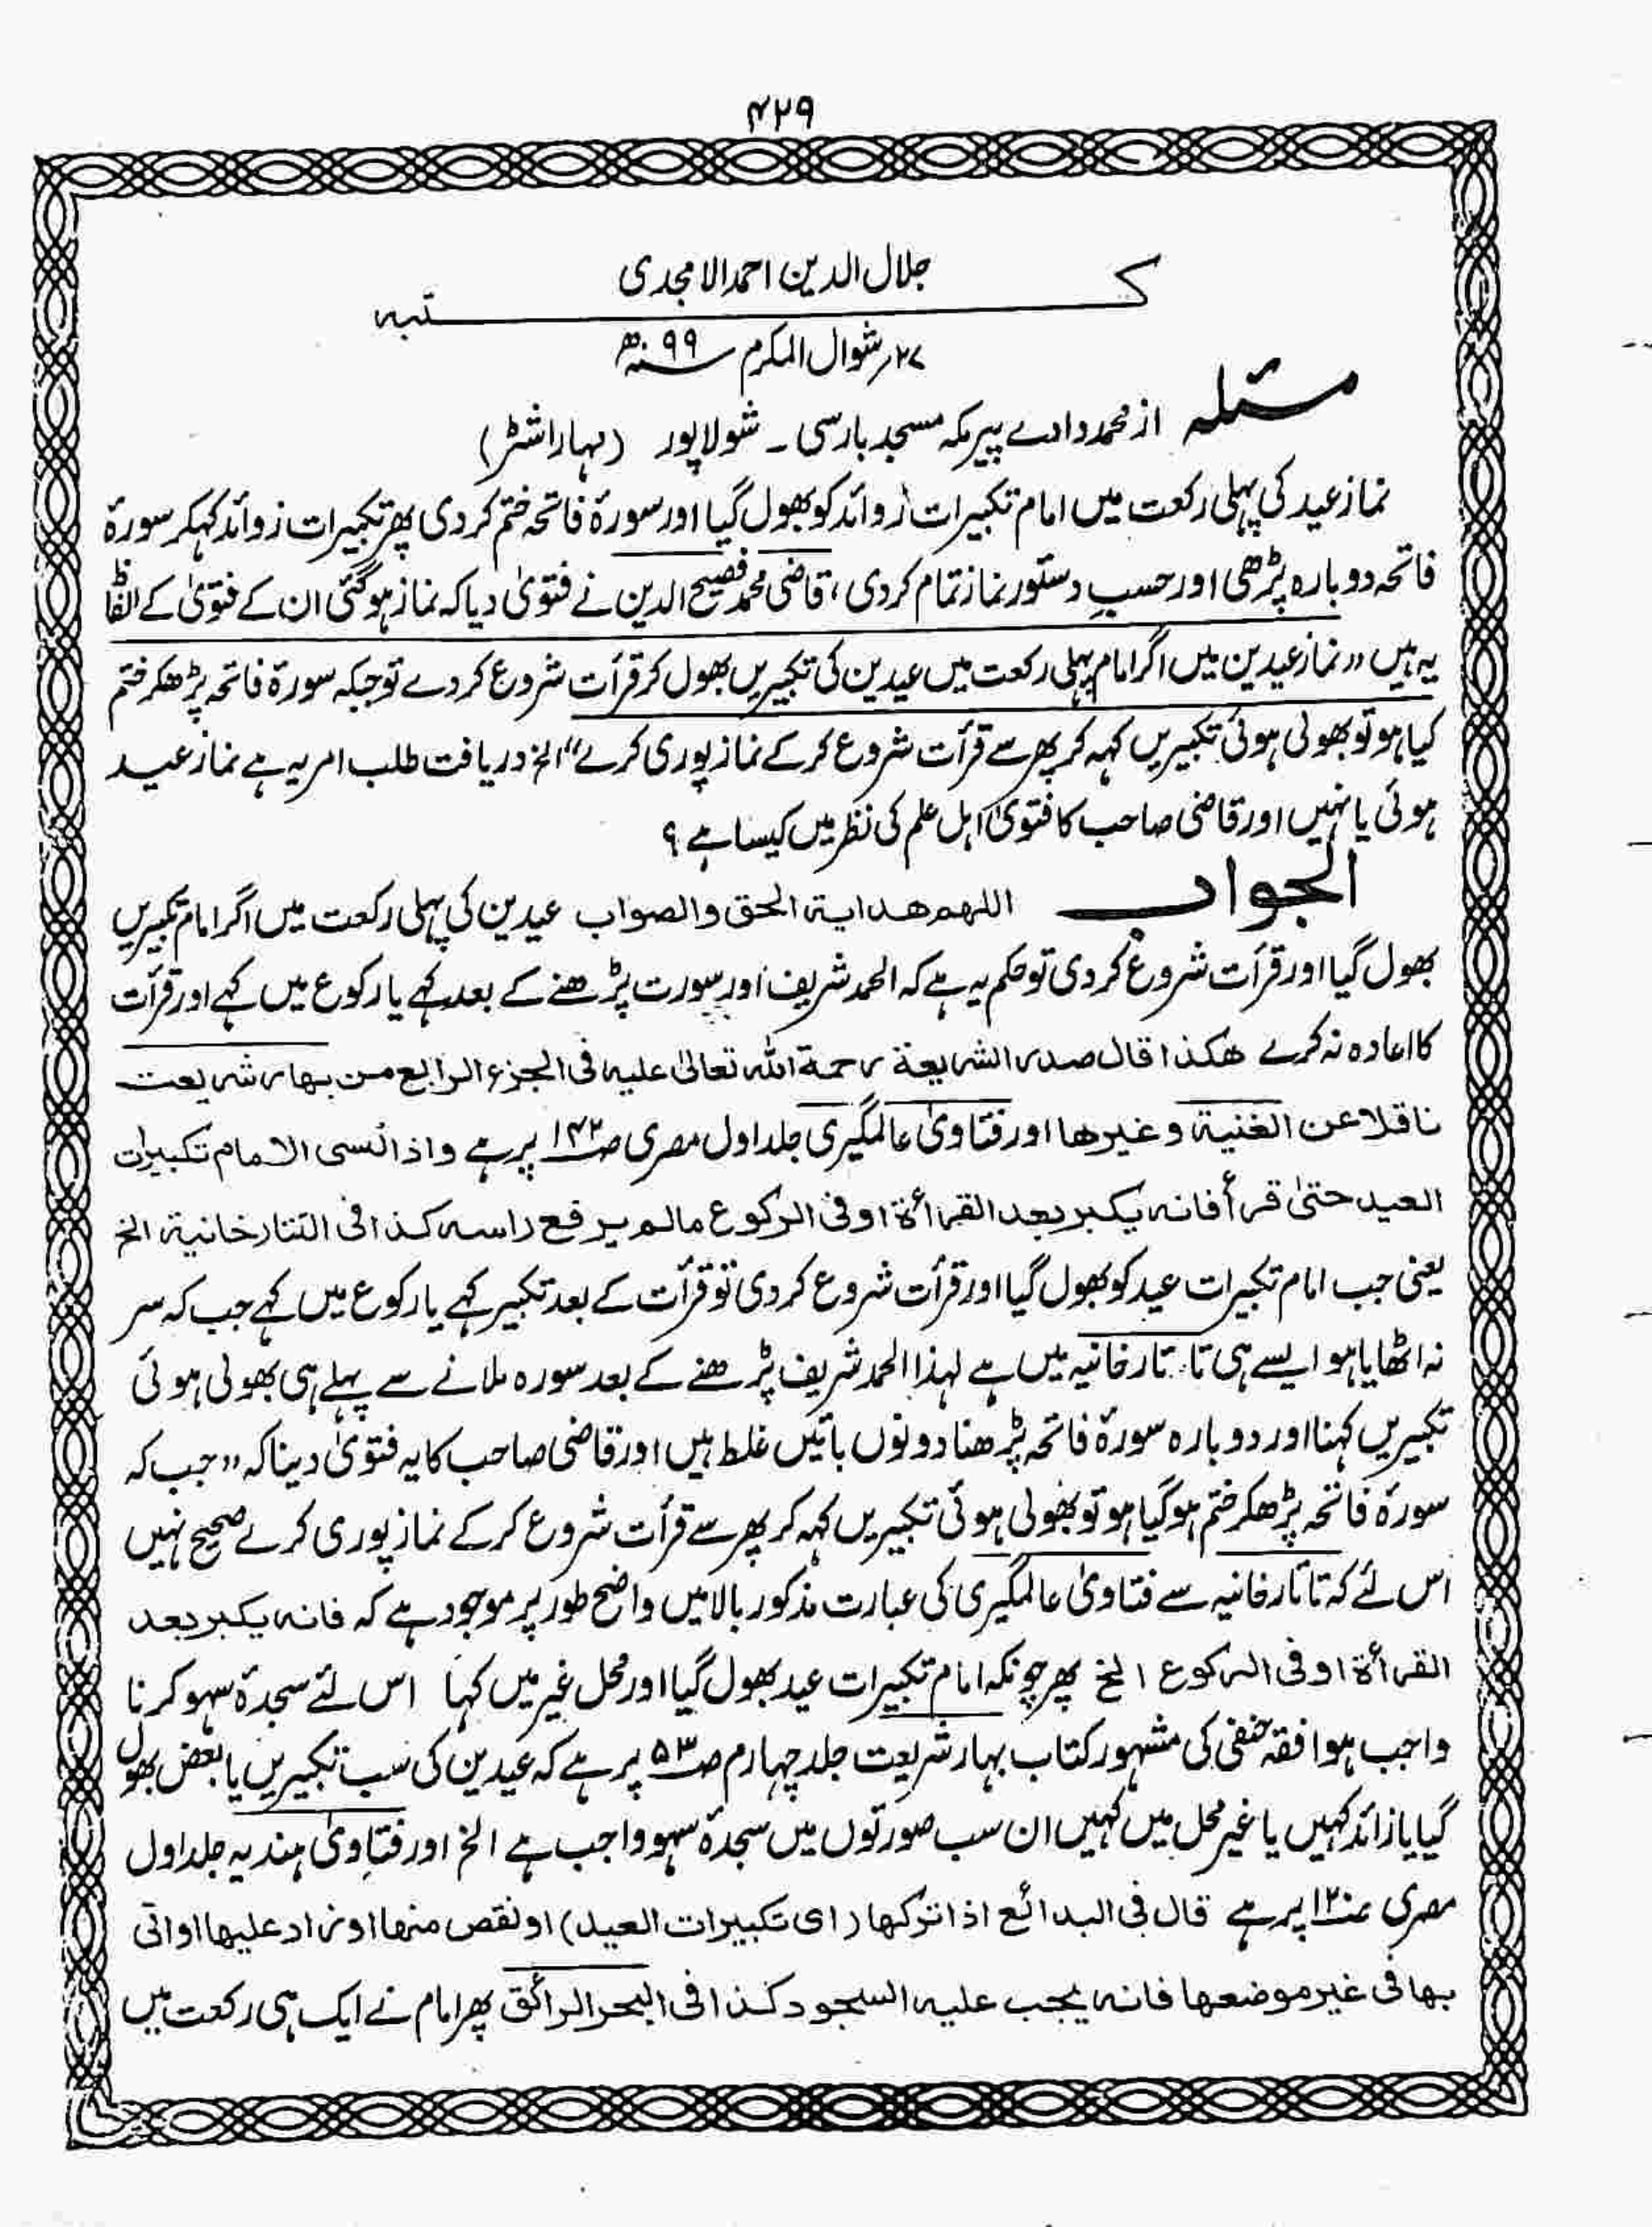 ۴۲۹
جلال الدین احمد الامجدی
کتبہ
۲۷ر شوال المکرم سنہ ۹۹ھ
مسئلہ از محمد دادے پیر مکہ مسجد بارسی ۔ شولاپور (مہاراشٹر)
نماز عید کی پہلی رکعت میں امام تکبیرات زوائد کو بھول گیا اور سورۂ فاتحہ ختم کر دی پھر تکبیرات زوائد کہکر سورۂ
فاتحہ دوبارہ پڑھی اور حسبِ دستور نماز تمام کر دی، قاضی محمد فصیح الدین نے فتویٰ دیا کہ نماز ہو گئی ان کے فتویٰ کے الفاظ
یہ ہیں „نماز عیدین میں اگر امام پہلی رکعت میں عیدین کی تکبیریں بھول کر قرأت شروع کر دے تو جبکہ سورۂ فاتحہ پڑھکر ختم
کیا ہو تو بھولی ہوئی تکبیریں کہہ کر پھر سے قرأت شروع کر کے نماز پوری کرلے“ الخ دریافت طلب امر یہ ہے نماز عید
ہوئی یا نہیں اور قاضی صاحب کا فتویٰ اہل علم کی نظر میں کیسا ہے ؟
الجواب اللھم ھدایۃ الحق والصواب عیدین کی پہلی رکعت میں اگر امام تکبیریں
بھول گیا اور قرأت شروع کر دی تو حکم یہ ہے کہ الحمد شریف اور سورت پڑھنے کے بعد کہے یا رکوع میں کہے اور قرأت
کا اعادہ نہ کرے ھکذا قال صدر الشریعۃ رحمۃ اللہ تعالیٰ علیہ فی الجزء الرابع من بہار شریعت
ناقلا عن الغنیۃ وغیرھا اور فتاویٰ عالمگیری جلد اول مصری صـ۱۴۲ پر ہے واذا نسی الامام تکبیرات
العید حتیٰ قرأ فانہ یکبر بعد القرأۃ او فی الرکوع مالم یرفع راسہ کذا فی التتارخانیۃ الخ
یعنی جب امام تکبیرات عید کو بھول گیا اور قرأت شروع کر دی تو قرأت کے بعد تکبیر کہے یا رکوع میں کہے جب کہ سر
نہ اٹھایا ہو ایسے ہی تاتارخانیہ میں ہے لہذا الحمد شریف پڑھنے کے بعد سورہ ملانے سے پہلے ہی بھولی ہوئی
تکبیریں کہنا اور دوبارہ سورۂ فاتحہ پڑھنا دونوں باتیں غلط ہیں اور قاضی صاحب کا یہ فتویٰ دینا کہ „جب کہ
سورۂ فاتحہ پڑھکر ختم ہو گیا ہو تو بھولی ہوئی تکبیریں کہہ کر پھر سے قرأت شروع کر کے نماز پوری کرلے صحیح نہیں
اس لئے کہ تاتارخانیہ سے فتاویٰ عالمگیری کی عبارت مذکور بالا میں واضح طور پر موجود ہے کہ فانہ یکبر بعد
القرأۃ او فی الرکوع الخ پھر چونکہ امام تکبیرات عید بھول گیا اور محل غیر میں کہا اس لئے سجدۂ سہو کرنا
واجب ہوا فقہ حنفی کی مشہور کتاب بہار شریعت جلد چہارم صـ۵۳ پر ہے کہ عیدین کی سب تکبیریں یا بعض بھول
گیا یا زائد کہیں یا غیر محل میں کہیں ان سب صورتوں میں سجدۂ سہو واجب ہے الخ اور فتاویٰ ہندیہ جلد اول
مصری صـ۱۲۰ پر ہے قال فی البدائع اذا ترکھا (ای تکبیرات العید) او نقص منھا او زاد علیھا او اتی
بھا فی غیر موضعھا فانہ یجب علیہ السجود کذا فی البحر الرائق پھر امام نے ایک ہی رکعت میں